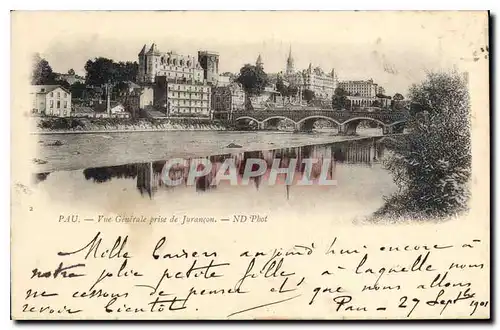 CPARAMA
PAU. - Vue Générale prise de Jurançon. - ND Phot
Mille Baisers aujourd'hui encore à
notre jolie petite fille, à laquelle nous
ne cessons de penser et que nous allons
revoir bientôt. Pau - 27 Septbre 1901